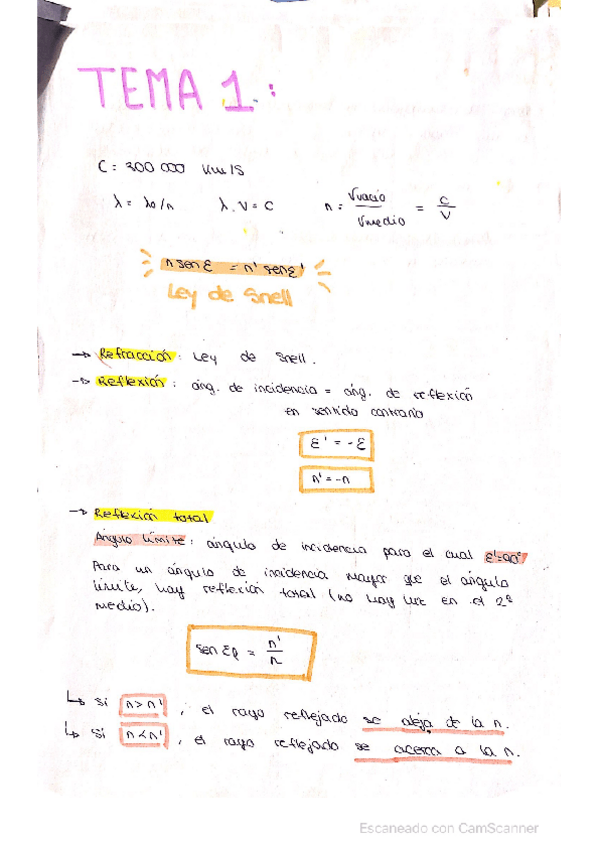 TEMA 1.:
C = 300 000 Km/S
λ = λo/n λ.ν = C n = Vvacío/Vmedio = C/V
n senε = n' senε'
Ley de Snell
→ Refracción: Ley de Snell.
→ Reflexión: áng. de incidencia = áng. de reflexión
en sentido contrario
ε' = -ε
n' = -n
→ Reflexión total
Ángulo límite: ángulo de incidencia para el cual ε'=90°
Para un ángulo de incidencia mayor que el ángulo
límite, hay reflexión total (no hay luz en el 2º
medio).
sen εl = n'/n
↳ Si n>n', el rayo reflejado se aleja de la n.
↳ Si n<n', el rayo reflejado se acerca a la n.
Escaneado con CamScanner